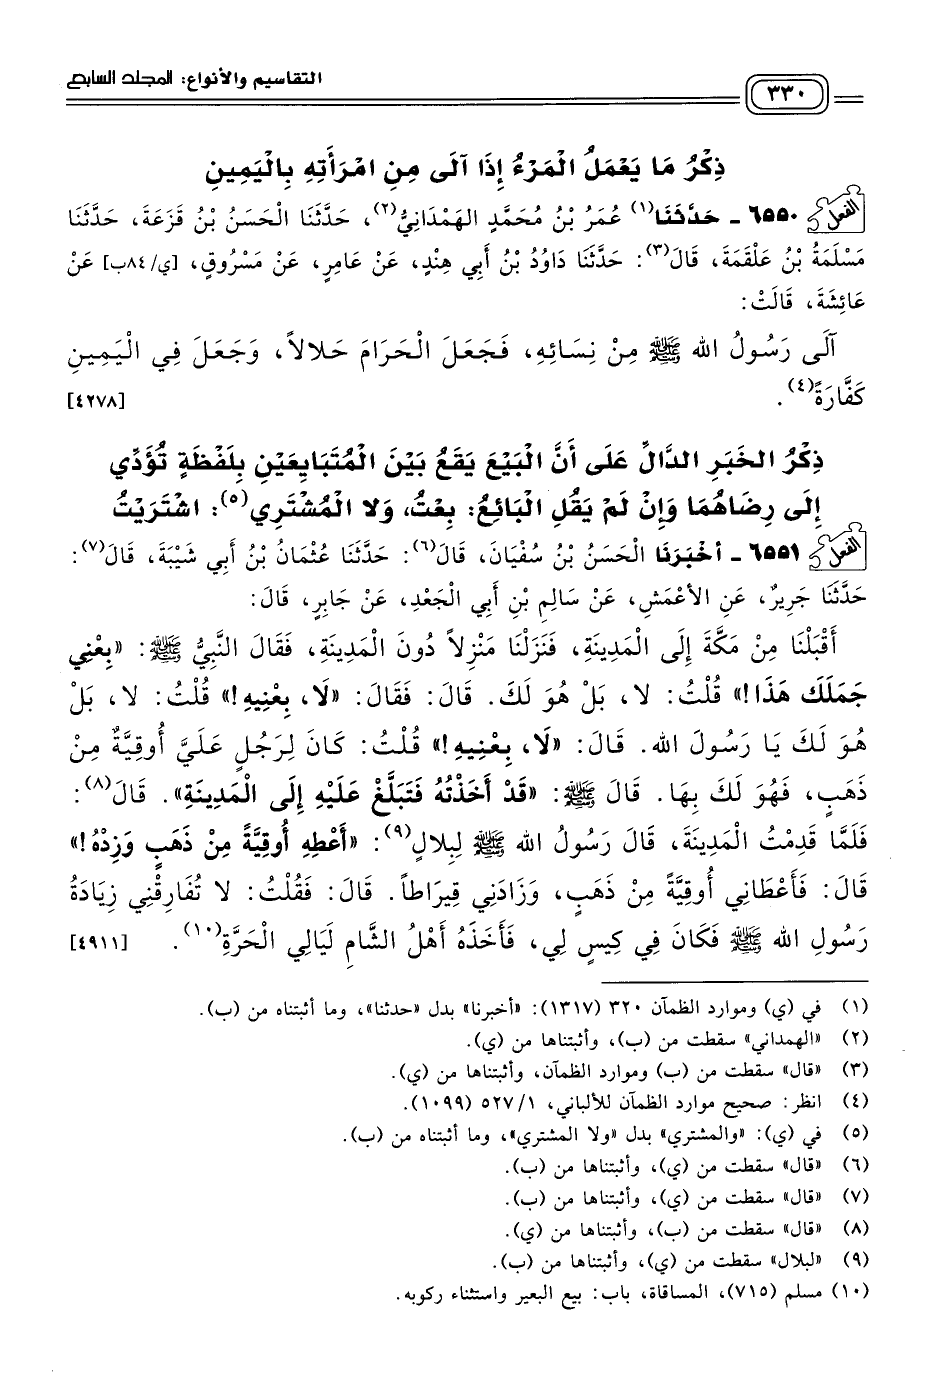 التقاسيم والأنواع: المجلد السابع
٣٣٠
ذِكْرُ مَا يَعْمَلُ الْمَرْءُ إِذَا آلَى مِنِ امْرَأَتِهِ بِالْيَمِينِ
الفعل ٦٥٥٠ - حَدَّثَنَا(١) عُمَرُ بْنُ مُحَمَّدٍ الهَمْدَانِيُّ(٢)، حَدَّثَنَا الْحَسَنُ بْنُ قَزَعَةَ، حَدَّثَنَا
مَسْلَمَةُ بْنُ عَلْقَمَةَ، قَالَ(٣): حَدَّثَنَا دَاوُدُ بْنُ أَبِي هِنْدٍ، عَنْ عَامِرٍ، عَنْ مَسْرُوقٍ، [ي/٨٤ب] عَنْ
عَائِشَةَ، قَالَتْ:
آلَى رَسُولُ الله ﷺ مِنْ نِسَائِهِ، فَجَعَلَ الْحَرَامَ حَلالاً، وَجَعَلَ فِي الْيَمِينِ
كَفَّارَةً(٤). [٤٢٧٨]
ذِكْرُ الخَبَرِ الدَّالِّ عَلَى أَنَّ الْبَيْعَ يَقَعُ بَيْنَ الْمُتَبَايِعَيْنِ بِلَفْظَةٍ تُؤَدِّي
إِلَى رِضَاهُمَا وَإِنْ لَمْ يَقُلِ الْبَائِعُ: بِعْتُ، وَلا الْمُشْتَرِي(٥): اشْتَرَيْتُ
الفعل ٦٥٥١ - أَخْبَرَنَا الْحَسَنُ بْنُ سُفْيَانَ، قَالَ(٦): حَدَّثَنَا عُثْمَانُ بْنُ أَبِي شَيْبَةَ، قَالَ(٧):
حَدَّثَنَا جَرِيرٌ، عَنِ الأَعْمَشِ، عَنْ سَالِمِ بْنِ أَبِي الْجَعْدِ، عَنْ جَابِرٍ، قَالَ:
أَقْبَلْنَا مِنْ مَكَّةَ إِلَى الْمَدِينَةِ، فَنَزَلْنَا مَنْزِلاً دُونَ الْمَدِينَةِ، فَقَالَ النَّبِيُّ ﷺ: «بِعْنِي
جَمَلَكَ هَذَا!» قُلْتُ: لا، بَلْ هُوَ لَكَ. قَالَ: فَقَالَ: «لَا، بِعْنِيهِ!» قُلْتُ: لا، بَلْ
هُوَ لَكَ يَا رَسُولَ الله. قَالَ: «لَا، بِعْنِيهِ!» قُلْتُ: كَانَ لِرَجُلٍ عَلَيَّ أُوقِيَّةٌ مِنْ
ذَهَبٍ، فَهُوَ لَكَ بِهَا. قَالَ ﷺ: «قَدْ أَخَذْتُهُ فَتَبَلَّغْ عَلَيْهِ إِلَى الْمَدِينَةِ». قَالَ(٨):
فَلَمَّا قَدِمْتُ الْمَدِينَةَ، قَالَ رَسُولُ الله ﷺ لِبِلالٍ(٩): «أَعْطِهِ أُوقِيَّةً مِنْ ذَهَبٍ وَزِدْهُ!»
قَالَ: فَأَعْطَانِي أُوقِيَّةً مِنْ ذَهَبٍ، وَزَادَنِي قِيرَاطاً. قَالَ: فَقُلْتُ: لا تُفَارِقُنِي زِيَادَةُ
رَسُولِ الله ﷺ فَكَانَ فِي كِيسٍ لِي، فَأَخَذَهُ أَهْلُ الشَّامِ لَيَالِيَ الْحَرَّةِ(١٠). [٤٩١١]
(١) في (ي) وموارد الظمآن ٣٢٠ (١٣١٧): «أخبرنا» بدل «حدثنا»، وما أثبتناه من (ب).
(٢) «الهمداني» سقطت من (ب)، وأثبتناها من (ي).
(٣) «قال» سقطت من (ب) وموارد الظمآن، وأثبتناها من (ي).
(٤) انظر: صحيح موارد الظمآن للألباني، ٥٢٧/١ (١٠٩٩).
(٥) في (ي): «والمشتري» بدل «ولا المشتري»، وما أثبتناه من (ب).
(٦) «قال» سقطت من (ي)، وأثبتناها من (ب).
(٧) «قال» سقطت من (ي)، وأثبتناها من (ب).
(٨) «قال» سقطت من (ب)، وأثبتناها من (ي).
(٩) «لبلال» سقطت من (ي)، وأثبتناها من (ب).
(١٠) مسلم (٧١٥)، المساقاة، باب: بيع البعير واستثناء ركوبه.